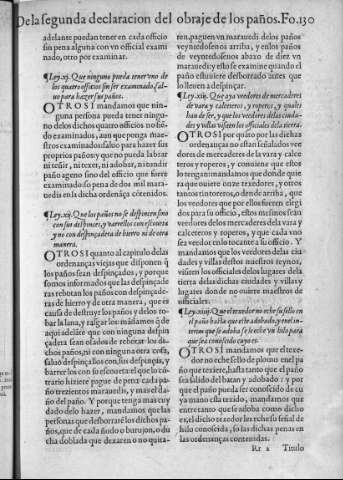 De la segunda declaracion del obraje de los paños. Fo. 130
adelante puedan tener en cada officio
sin pena alguna con vn official exami
nado, otro por examinar.
¶ Ley. xj. Que ninguno pueda tener vno de
los quatro officios sin ser examinado, sal
uo para hazer sus paños.
OTROSI mandamos que nin-
guna persona pueda tener ningu
no delos dichos quatro officios no siē
do examinados, aun que ponga mae-
stro examinado: saluo para hazer sus
proprios paños: y que no pueda labrar
ni teñir, ni texer, ni adobar, ni tundir
paño ageno sino del officio que fuere
examinado so pena de dos mil mara-
uedis en la dicha ordenāça cōtenidos.
¶ Ley. xij. Que los paños no se despincen sino
con sus despinces, y barrellos con escoueta
y no con despinçadera de hierro ni de otra
manera.
OTROSI quanto al capitulo delas
ordenanças viejas que disponen q̄
los paños sean despinçados, y porque
somos informados que las despinçade
ras rebotan los paños con despinçade-
ras de hierro y de otra manera, que es
causa de destruyr los paños y dellos to-
bar la lana, y rasgar los: mādamos q̄ de
aqui adelāte que con ninguna despin
çadera sean osados de rebotar los di-
chos paños, ni con ninguna otra cosa,
saluo despinçallos con sus despinças, y
barrer los con su escoueta: el que lo cō-
trario hiziere pague de pena cada pa-
ño trezientos marauedis, y mas el da-
ño del paño. Y porque tenga mas cuy
dado delo hazer, mandamos que las
personas que desborraré los dichos pa-
ños, que de cada ñudo o burujon, o du
cha doblada que dexaren o no quita-
ren, paguen vn marauedi delos paños
veynte dosenos arriba, y enlos paños
de veynte dosenos abaxo de diez vn
marauedi: y esto se examine quando el
paño estuuiere desborrado antes que
lo lleuen a despinçar.
¶ Ley. xiij. Que aya veedores de mercaderes
de vara y calceteros, y roperos, y quales
han de ser, y que los veedores delas ciuda-
des y villas visiten los officiales dela tierra.
OTROSI por quāto por las dichas
ordenanças no estan señalados vee
dores de mercaderes de la vara y calce
teros y roperos, y conuiene que estos
lo tengan: mandamos que donde quie
ra que ouiere onze texedores, y otros
tantos tintoreros, o den de arriba, que
los veedores que por ellos fueren elegi
dos para su officio, estos mesmos seān
veedores delos mercaderes dela vara y
calceteros y roperos, y que cada vno
sea veedor en lo tocante a su officio. Y
mandamos que los veedores delas ciu-
dades y villas destos nuestros reynos,
visiten los officiales delos lugares dela
tierra delas dichas ciudades y villas y
lugares donde no ouiere maestros de
officiales.
¶ Ley. xiiij. Que el texedor no eche su sello en
el paño hasta que este adobado, y en el in-
terim que se adoba se le eche vn hilo para
que sea conoscido cuyo es.
OTROSI mandamos que el texe-
dor no eche sello de plomo en el pa
ño que texiere, hasta tanto que el paño
sea salido del batan y adobado: y por
que el paño pueda ser conoscido de cu
ya mano esta texido, mandamos que
entre tanto que se adoba como dicho
es, el dicho texedor les eche su señal de
hilo conoscida, so las dichas penas en
las ordenanças contenidas.
Rr 2 Titulo